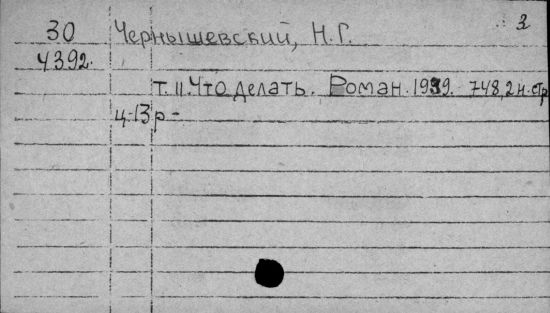 3
30 Чернышевский, Н.Г.
4392.
т. 11. Что делать. Роман. 1939. 748, 2 н. стр
ц. 13 р –